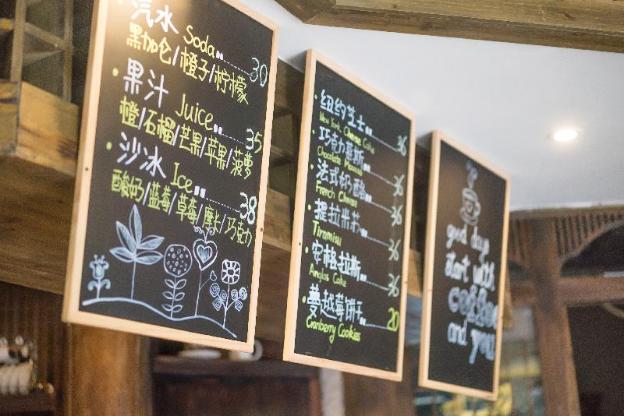 汽水 Soda 30
黑加仑/橙子/柠檬
果汁 Juice 35
橙/石榴/芒果/苹果/菠萝
沙冰 Ice 38
酸奶/蓝莓/草莓/摩卡/巧克力
纽约芝士 36
New York Cheese Cake
巧克力慕斯
Chocolate Mousse
法式奶酪
French Cheese
提拉米苏
Tiramisu
安格拉斯
Anglas Cake
蔓越莓饼干 20
Cranberry Cookies
good days
start with
coffee
and you